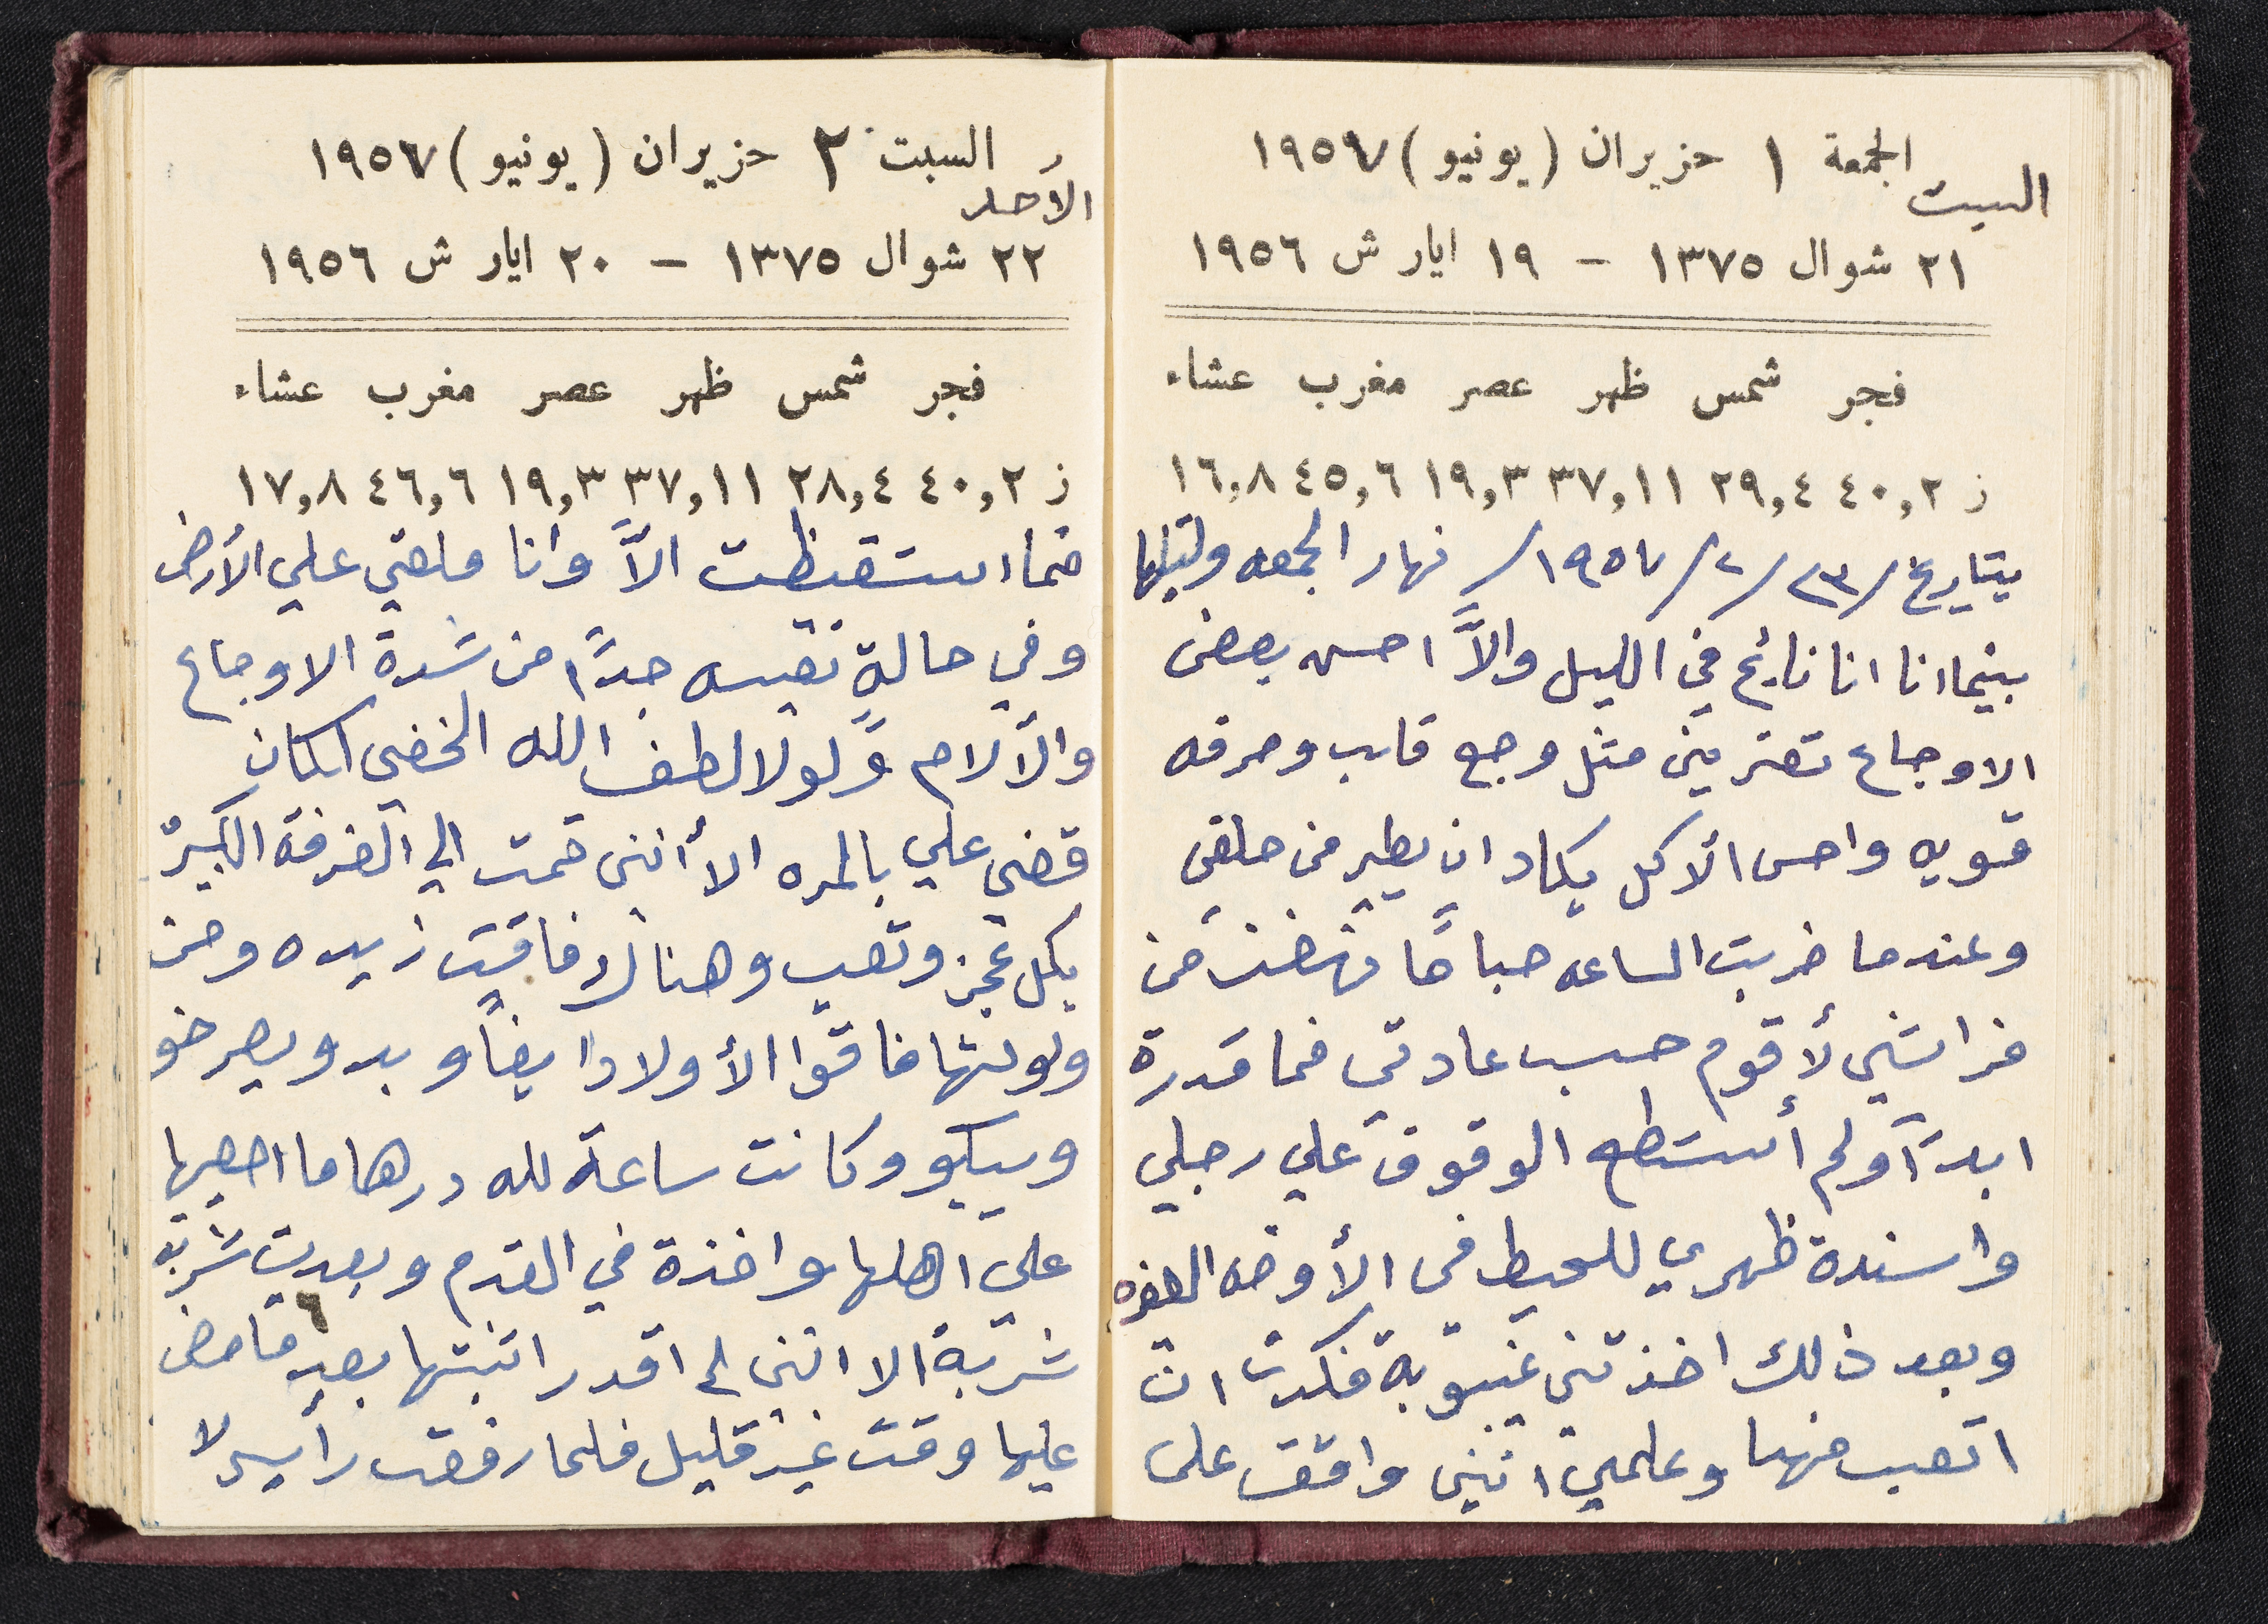 الجمعة ١ حزيران (يونيو) ١٩٥٧
السبت
٢١ شوال ١٣٧٥ - ١٩ ايار ش ١٩٥٦
فجر شمس ظهر عصر مغرب عشاء
ز ٤٠,٢ ٢٩,٤ ٣٧,١١ ١٩,٣ ٤٥,٦ ١٦,٨
بتاريخ /٢٣/٢/١٩٥٧/ نهار الجمعه وليلها
بينما انا انا نائم في الليل والاَّ احس بعض
الاوجاع تعتريني مثل وجع قلب وحرقه
قويه واحس الأكل يكاد ان يطير من حلقي
وعندما ضربت الساعه صباحًا نهضت من
فراشي لأقوم حسب عادتي فما قدرة
ابدًا ولم أستطع الوقوف علي رجلي
واسندة ظهري للحيط في الأوضه
وبعد ذلك اخذتني غيبوبة فكدت ان
اتعب منها وعلمي انني واقف على
السبت ٢ حزيران (يونيو) ١٩٥٧
الأحد
٢٢ شوال ١٣٧٥ - ٢٠ ايار ش ١٩٥٦
فجر شمس ظهر عصر مغرب عشاء
ز ٤٠,٢ ٢٨,٤ ٣٧,١١ ١٩,٣ ٤٦,٦ ١٧,٨
فما استقيظت الاَّ وانا ملقي علي الأرض
وفي حالةٍ تعيسه جدًا من شدة الاوجاع
والألام وَّلولا لطف الله الخفي لكان
قضي علي بالمره الا أنني قمت الي الغرفة الكبيرة
بكل عجز وتعب وهناك فاقت زبيده ومن
ولولتها فاقوا الأولاد ايضاً وبدو يصرخو
ويبكو وكانت ساعة لله درها ما اصعبها
على اهلها واخذة في القدم وبعديت شربة
شربة الا انني لم اقدر اثبتها بعد ما مضى
عليها وقت غير قليل فلما رفعت رأسي لا